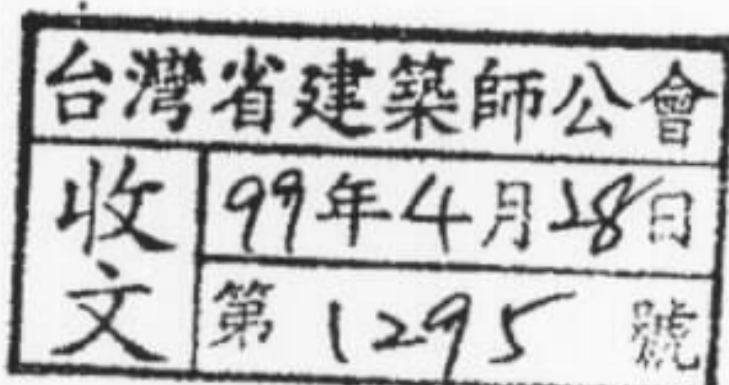 台灣省建築師公會
收文
99年4月28日
第1295號